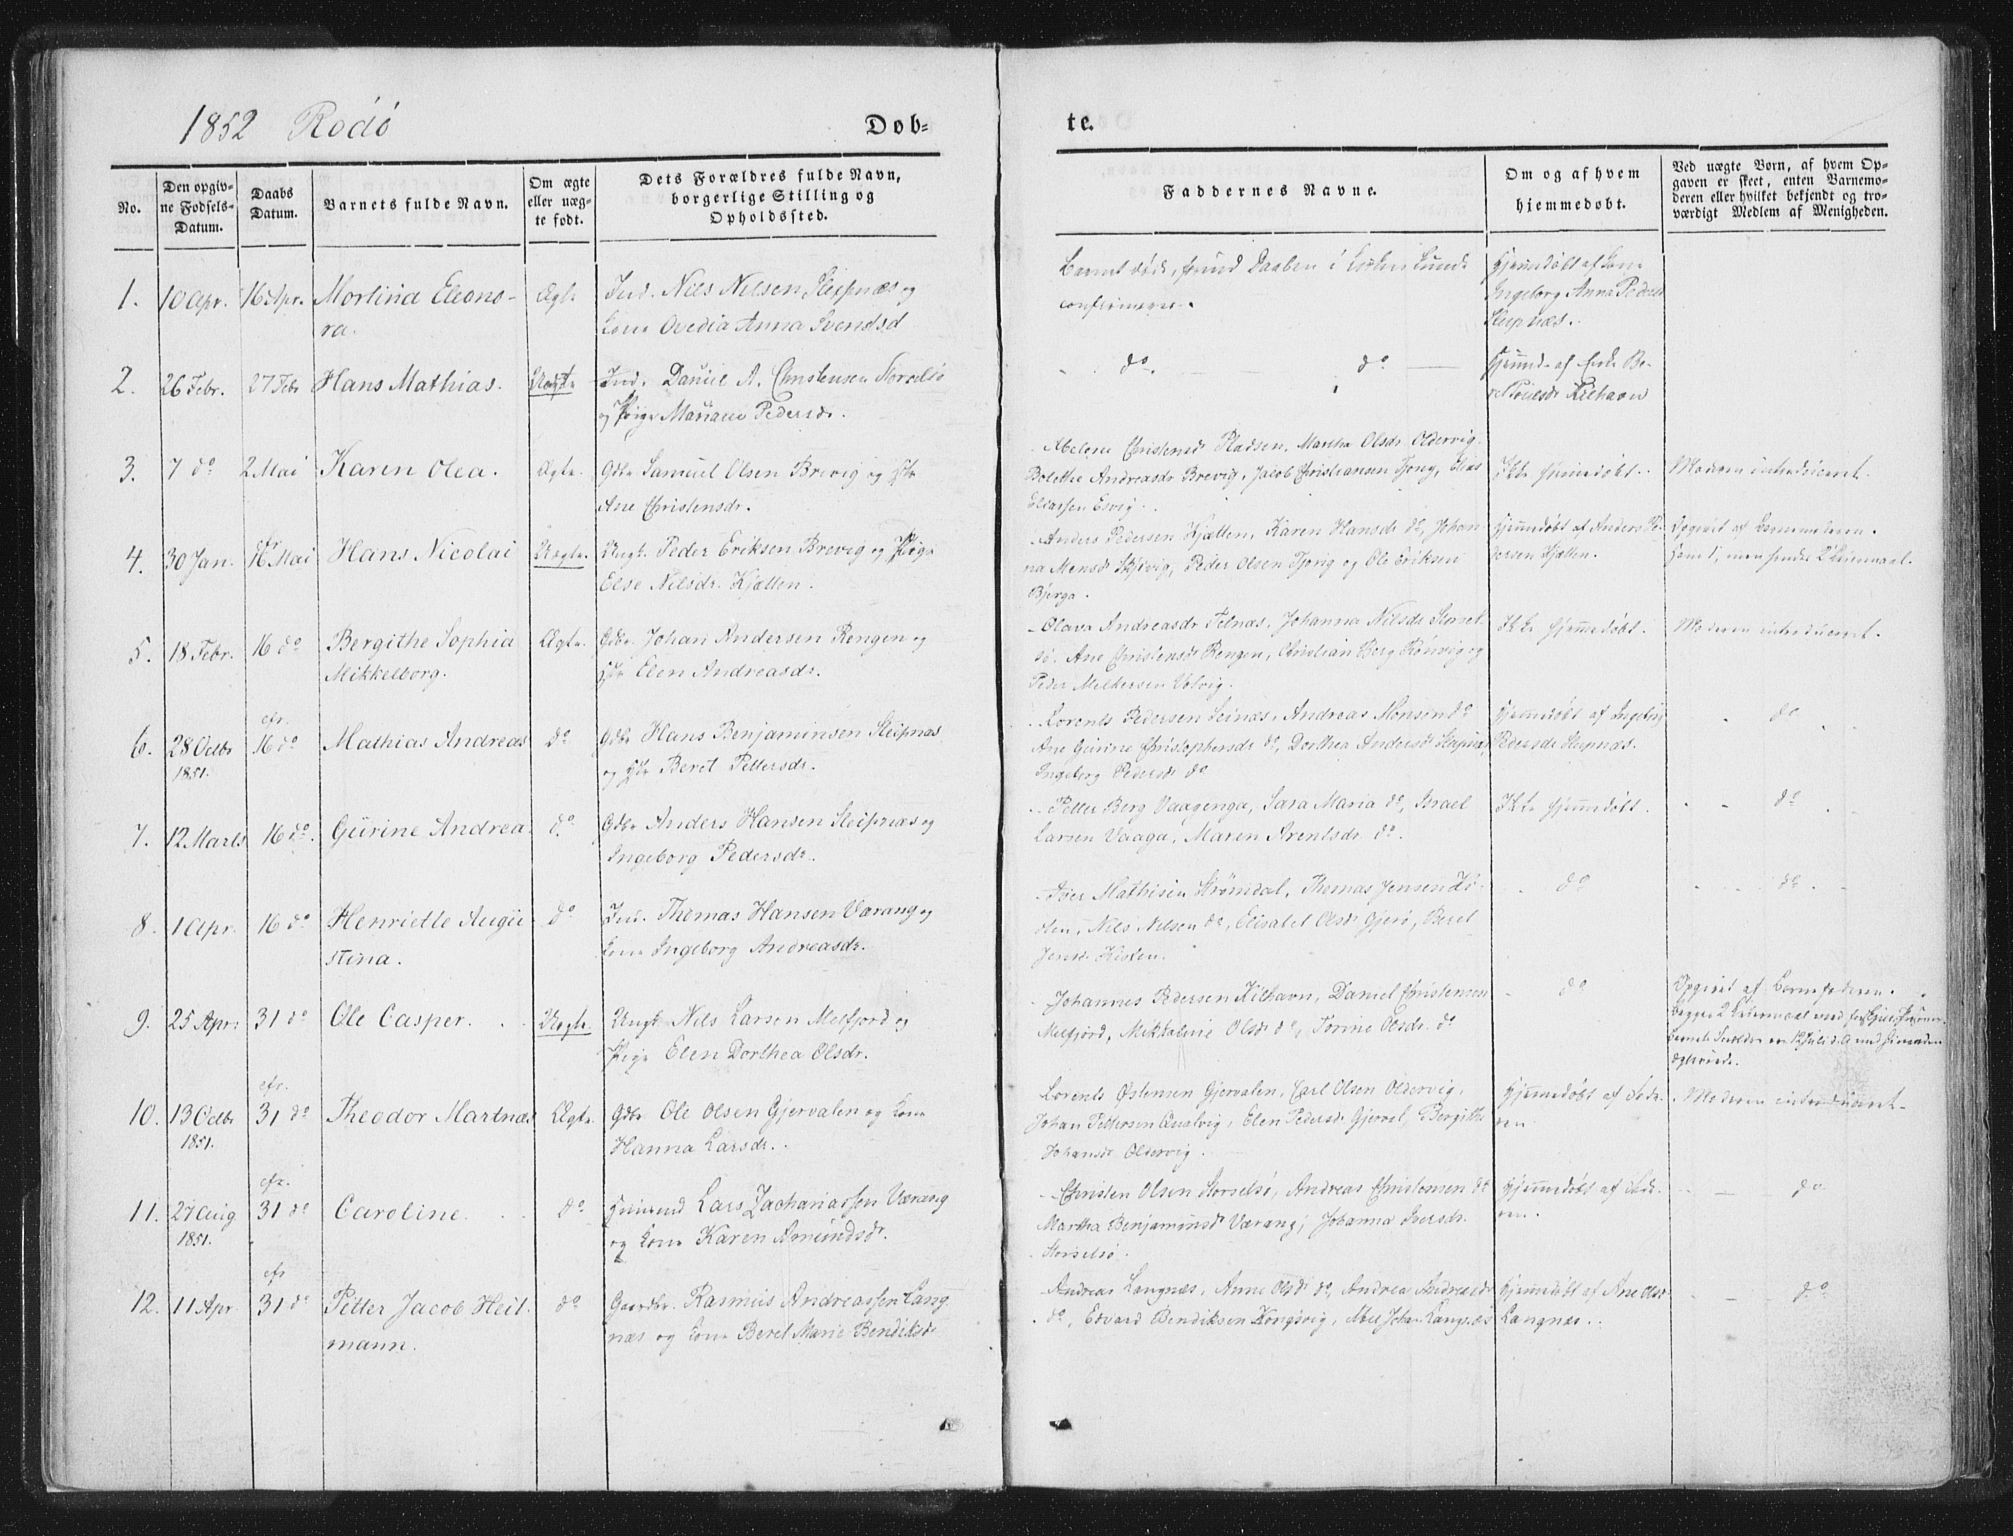 1852 Rödö
Døb-
te.
No.
Den opgiv-
ne Fødsels-
Datum.
Daabs
Datum.
Barnets fulde Navn.
Om ægte
eller uæg-
te født.
Dets Forældres fulde Navn,
borgerlige Stilling og
Opholdssted.
Faddernes Navne.
Om og af hvem
hjemmedøbt.
Ved uægte Børn, af hvem Op-
gaven er skeet, enten Barnemo-
deren eller hvilket bekjendt og tro-
værdigt Medlem af Menigheden.
1. 10 Apr. 16 Apr. Martina Eleono-
ra.
Ægte
Ind. Nils Nilsen Sleipnæs og
Kone Ovedia Anna Svendsd
Barnet døde, førend Daaben i Kirken kunde
confirmeres.
Hjemdøbt af
Ingeborg Anna Peders
Sleipnæs.
2. 26 Febr. 27 Febr Hans Mathias. Uægte
Ind. Daniel A. Christensen Storselsö
og Pige Mariane Pedersdr.
do. do
Hjemd. af
Kilhavn
3. 7 do 2 Mai Karen Olea. Ægte.
Gdbr Samuel Olsen Brevig og Hstr
Ane Christensdr.
Abelone Christensdr Pladsen, Martha Olsdr Oldervig
Bolethe Andreasdr Brevig, Jacob Christiansen Tjong, Elias
Eliassen Esvig.
Ikke hjemmedøbt.
Moderen introduceret.
4. 30 Jan. 16 Mai Hans Nicolai Uægte.
Ungk. Peder Eriksen Brevig og Pige
Else Nilsdr. Kjætten.
Anders Pedersen Kjætten, Karen Hansdr do, Johan-
na Monsdr Skjevig, Peder Olsen Tjong og Ole Eriksen
Bjerga.
Hjemmdøbt af Anders Pe-
dersen Kjætten.
Opgivet af Barnemoderen.
Hans 1, men hendes 2 Leiermaal.
5. 18 Febr. 16 do Bergithe Sophia
Mikkelborg.
Ægte.
Gdbr. Johan Andersen Rengen og
Hstr Elen Andreasdr.
Olava Andreasdr Telnæs, Johanna Nilsdr Storsel-
sö. Ane Christensdr Rengen, Christian Berg Rönvig og
Peder Melkersen Valvig.
Ikke hjemmedøbt.
Moderen introduceret.
6. 28 Octbr
1851.
cfr.
16 do Mathias Andreas do
Gdbr Hans Benjaminsen Sleipnæs
og Hstr Beret Pettersdr.
Lorents Pedersen Seinæs, Andreas Monsen do
Ane Gurine Christophersdr do, Dorthea Andersdr Sleipnæs,
Ingeborg Pedersdr do
Hjemmdøbt af Ingeborg
Pedersdr Sleipnæs.
do
7. 12 Marts 16 do. Gurine Andrea. do.
Gdbr Anders Hansen Sleipnæs og
Ingeborg Pedersdr.
Petter Berg Vaagenga, Sara Maria do, Israel
Larsen Vaaga, Maren Arentsdr do.
Ikke hjemmdøbt.
do
8. 1 Apr. 16 do Henriette Augu-
stina.
do
Ind. Thomas Hansen Værang og
Kone Ingeborg Andreasdr.
Iver Mathisen Strömdal, Thomas Jensen Ki-
sten, Nils Nilsen do, Elisabet Olsdr Gjerö, Beret
Jensdr Kisten.
do
do
9. 25 Apr. 31 do Ole Casper. Uægte.
Ungk. Nils Larsen Melfjord og
Pige Elen Dorthea Olsdr.
Johannes Pedersen Kilhavn, Daniel Christensen
Melfjord, Mikkaline Olsdr do, Torine Olsdr. do
do
Opgivet af Barnefaderen.
10. 13 Octbr
1851.
cfr.
31 do Theodor Martnæs Ægte.
Gdbr Ole Olsen Gjervalen og Kone
Hanna Larsdr.
Lorents Östensen Gjervalen, Carl Olsen Oldervig,
Johan Pettersen Qualvig, Elen Pedersdr Gjerval, Bergithe
Johansdr Oldervig.
Hjemmedøbt af Fade-
ren.
Moderen introduceret.
11. 27 Aug.
1851.
cfr.
31 do Caroline. do.
Lars Zachariassen Værang
og Kone Karen Amundsdr.
Christen Olsen Storselsö, Andreas Christensen do
Martha Benjaminsdr Værang, Johanna Iversdr.
Storselsö.
Hjemmedøbt af Fade-
ren.
do
12. 11 Apr.
cfr
31 do Petter Jacob Heil-
mann.
do
Gaardbr. Rasmus Andreassen Lang-
næs og Kone Beret Marie Bendiksdr
Andreas Langnæs, Anne Olsdr do, Andrea Andreasdr
do, Edvard Bendiksen Kongsvig, Johan Langnæs
Hjemmdøbt af Ane Olsdr
Langnæs.
do